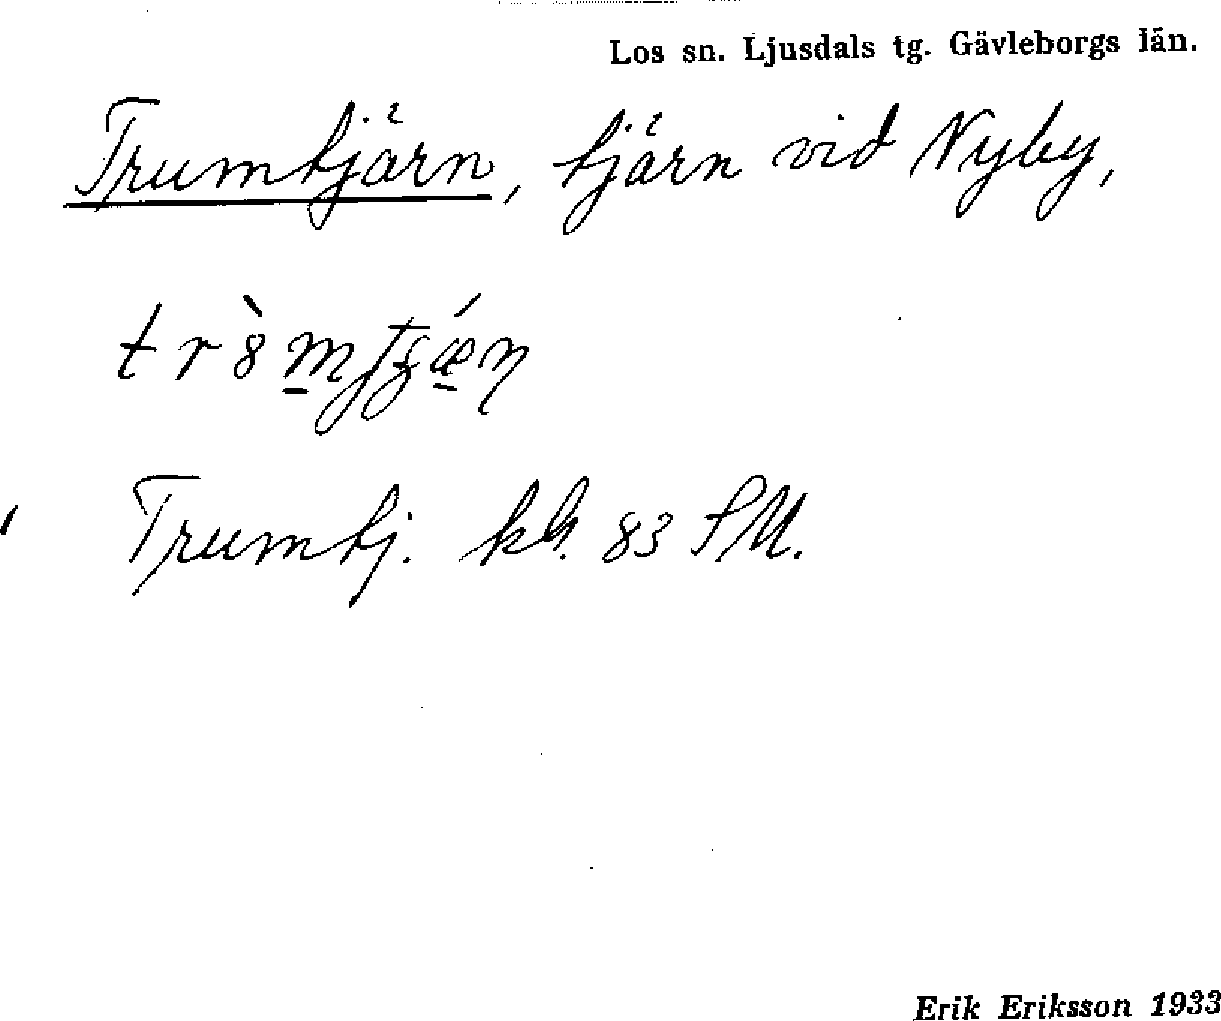 Los sn. Ljusdals tg. Gävleborgs län.
Trumtjärn, tjärn vid Nyby,
Trumtj. kbl. 83 SM.
Erik Eriksson 1933